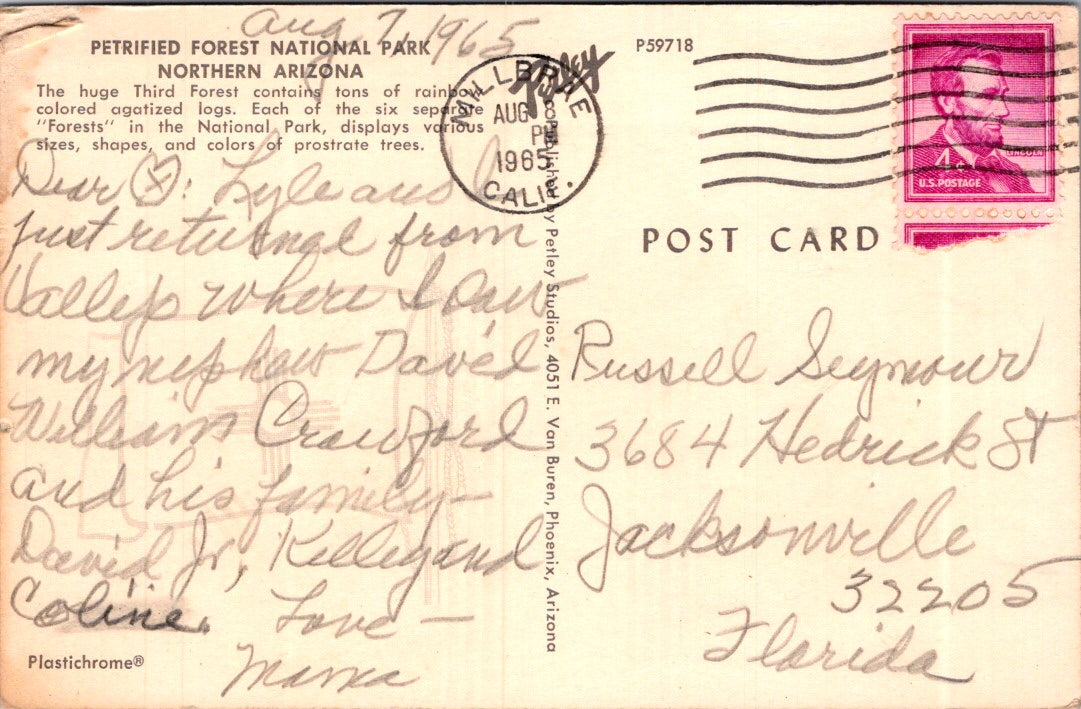 Aug 7, 1965
PETRIFIED FOREST NATIONAL PARK
NORTHERN ARIZONA
The huge Third Forest contains tons of rainbow
colored agatized logs. Each of the six separate
"Forests" in the National Park, displays various
sizes, shapes, and colors of prostrate trees.
Dear : Lyle and I
just returned from
where I saw
my nephew David
William Crawford
and his family—
David Jr, Kelley and
Coline. Love —
Mama
Plastichrome®
Published by Petley Studios, 4051 E. Van Buren, Phoenix, Arizona
Petley
P59718
MILLBRAE
AUG
PM
1965
CALIF.
LINCOLN
4¢
U.S. POSTAGE
POST CARD
Russell Seymour
3684 Hedrick St
Jacksonville
32205
Florida